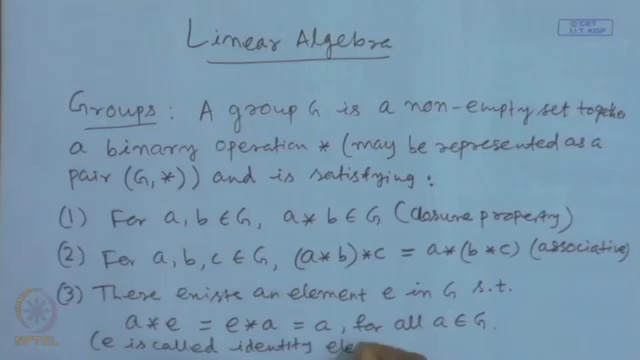 © CET
I.I.T. KGP
Linear Algebra
Groups : A group G is a non-empty set together
a binary operation * (may be represented as a
pair (G, *)) and is satisfying :
(1) For a, b ∈ G, a * b ∈ G (closure property)
(2) For a, b, c ∈ G, (a * b) * c = a * (b * c) (associative)
(3) There exists an element e in G s.t.
a * e = e * a = a, for all a ∈ G.
(e is called identity ele
NPTEL